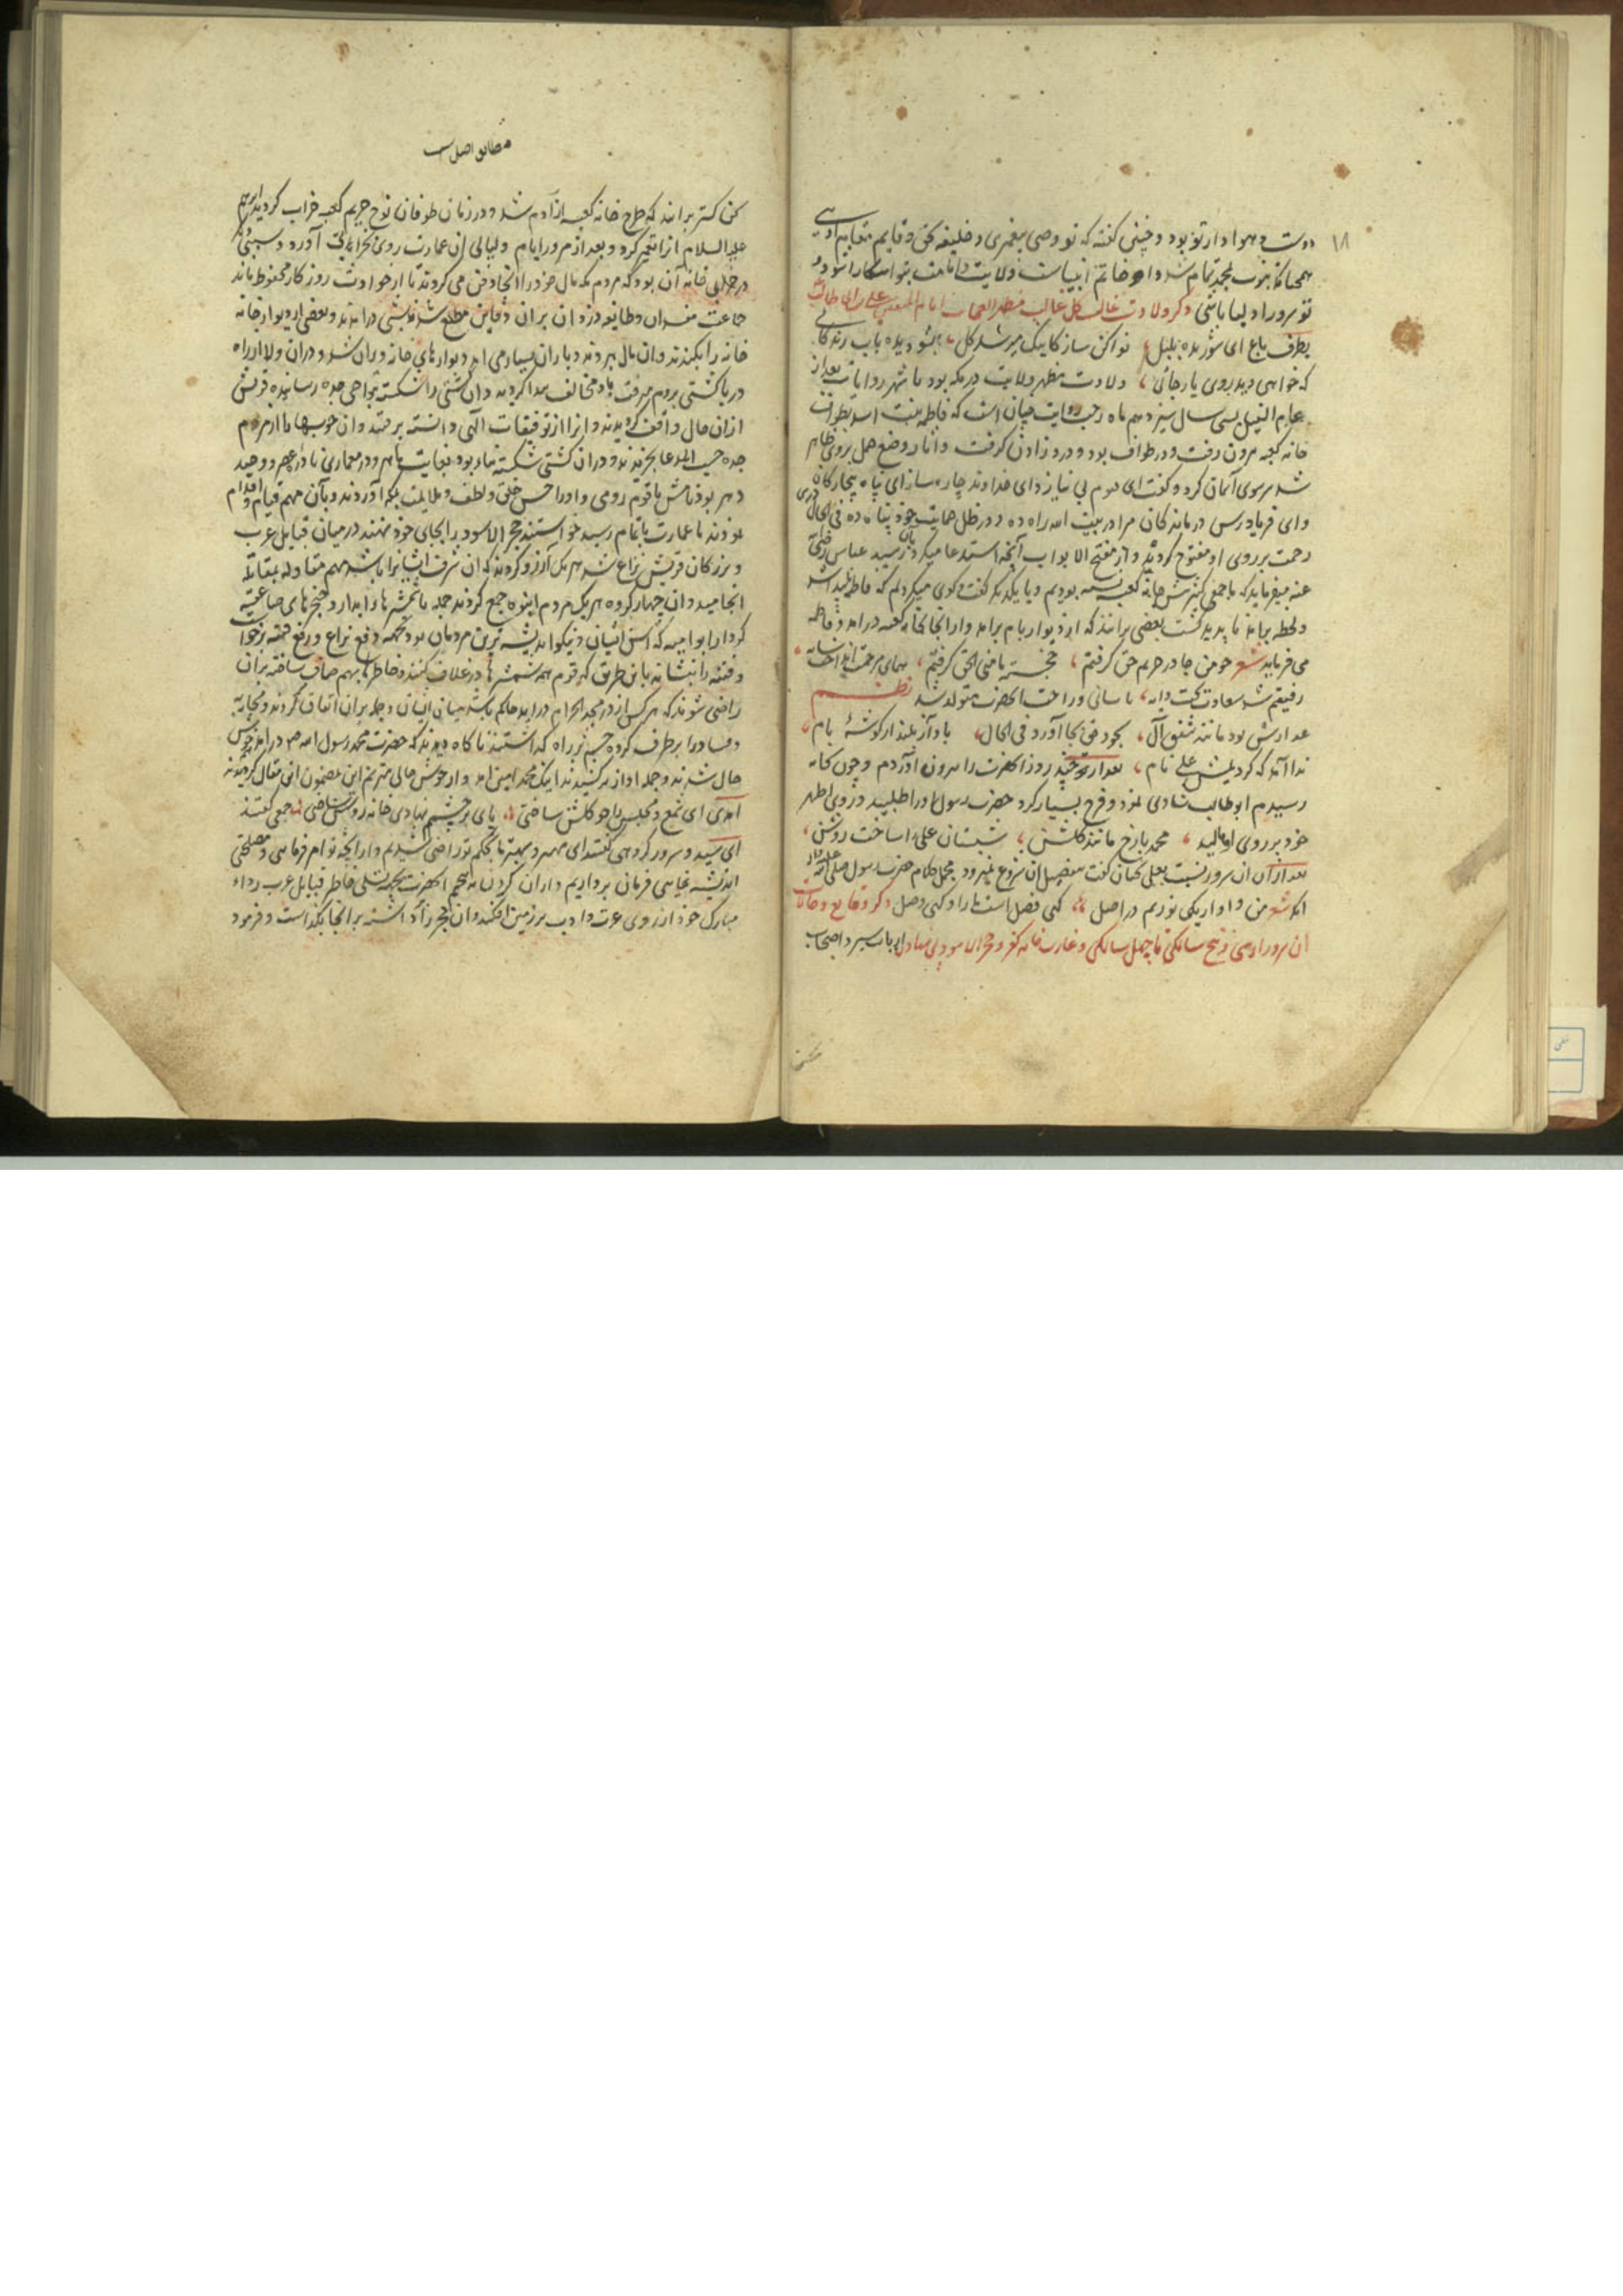 ۱۸
دوست و هوادار تو بود و چنین گفته که تو وصی پیغمبری و خلیفه بحق و قایم مقام
همچنانکه نبوت بمحمد تمام شد و او خاتم انبیاست ولایت و امامت بتو آشکارا شود و
تو سرور اولیا باشی ذکر ولادت غالب کل غالب مظهر العجایب امام علی بن ابی طالب
بطرف باغ ای شوریده بلبل نوا کن ساز کاینک میرسد گل بشو دیده بآب زندگانی
که خواهی دید روی یار جانی ولادت مظهر ولایت در مکه بود باشهر روایات بعد از
عام الفیل بسی سال سیزدهم ماه رجب روایت چنان است که فاطمه بنت اسد بطواف
خانه کعبه بیرون رفت و در طواف بود و درد زادن گرفت و آثار وضع حمل بروی ظاهر
شد سر بسوی آسمان کرد و گفت ای بی نیاز و ای خداوند چاره ساز ای پناه بیچارگان
و ای فریادرس درماندگان مرا در بیت الله راه ده و در ظل حمایت خود پناه ده فی الحال
رحمت بر روی او مفتوح گردید و از مفتح الابواب آنچه استدعا میکرد بآن رسید عباس رضی
عنه میفرماید که با جمعی کثیر پیش خانه کعبه نشسته بودیم و با یکدیگر گفت و گوی میکردیم که فاطمه
و لحظه برآمد ناپدید گشت بعضی برانند که از دیوار بام برآمد و از آنجا بخانه کعبه درآمد و فاطمه
می فرماید شعر چو من جا در حریم حق گرفتم خجسته مأمنی الحق گرفتم همای مرحمت انداخت سایه
رفیقم شد سعادت گشت دایه باسانی و راحت آنحضرت متولد شد نظم
عذارش بود مانند شفق آل سجود حق بجا آورد فی الحال بآواز بلند از گوشهٔ بام
ندا آمد که کردیمش علی نام بعد از سه روز آنحضرت را بیرون آوردم و چون بخانه
رسیدم ابوطالب شادی نمود و فرح بسیار کرد حضرت رسول او را طلبید و روی اطهر
خود بر روی او مالید محمد با رخ مانند گلشن شبستان علی را ساخت روشن
بعد از آن آن سرور نسبت بعلی سخنان گفت بتفصیل آن شروع نمیرود مجمل کلام حضرت رسول صلی الله
آنکه شعر من و او از یکی نوریم در اصل گهی فصل است ما را و گهی وصل ذکر وقایع و حالات
آن سرور از سی و پنج سالگی تا چهل سالگی و عمارت خانه کعبه و حجر الاسود ارباب سیر و اصحاب
سخن
مطابق اصل است
سخن گستر برانند که طرح خانه کعبه از آدم شد و در زمان طوفان نوح حریم کعبه خراب گردید ابراهیم
علیه السلام آنرا تعمیر کرد و بعد از مرور ایام و لیالی آن عمارت روی بخرابی آورد و سبب
در خرابی خانه آن بود که مردم مکه مال خود را در آنجا دفن می کردند تا از حوادث روزگار محفوظ ماند
جماعت مفسدان و طایفه دزدان بر آن دفاین مطلع شدند شبی درآمدند و بعضی از دیوار خانه
خانه را بکندند و آن مال بردند و باران بسیار می آمد دیوارهای خانه ویران شد و در آن ولا از راه
دریا کشتی بروم میرفت باد مخالف پیدا گردید و آن کشتی را شکسته بنواحی جده رسانید و قریش
از آن حال واقف گردیدند و آنرا از توفیقات الهی دانسته برفتند و آن چوبها را از مردم
جده حسب المدعا بخریدند و در آن کشتی شکسته بنا و بود بغایت ماهر و در معماری نادر عصر و وحید
دهر بود نامش باقوم رومی و او را بحسن خلق و لطف و ملایمت بمکه آوردند و بآن مهم قیام و اقدام
نمودند تا عمارت باتمام رسید خواستند حجر الاسود را بجای خود نهند در میان قبایل عرب
و بزرگان قریش نزاع شد هر یک آرزو کردند که آن شرف ایشانرا باشد مهم مقاوله بمقاتله
انجامید و آن چهار گروه هر یک مردم انبوه جمع کردند جمله با شمشیرهای آبدار و خنجرهای صاعقه
کردار ابو امیه که اسن ایشان و نیکو اندیشه ترین مردمان بود بجهة دفع نزاع و رفع فتنه برخواست
و فتنه را بنشاند باین طریق که قوم همه شمشیرها در غلاف کنند و خاطرها بهم صاف ساخته بر آن
راضی شوند که هر کس از در مسجد الحرام درآید حاکم باشد میان ایشان و جمله بر آن اتفاق کردند و محاربه
و فساد را برطرف کرده چشم بر راه گذاشتند ناگاه دیدند که حضرت محمد رسول الله ص درآمد
حال شدند و جمله آواز برکشیدند اینک محمد امین آمد و از خوش حالی مترنم این مضمون این مقال گردیدند
آمدی ای شمع و مجلس را چو گلشن ساختی پای بر چشمم نهادی خانه روشن ساختی جمعی گفتند
ای سید و سرور گروهی گفتند ای مهتر و بهتر ما بحکم تو راضی شدیم و از آنچه تو امر فرمایی و مصلحتی
اندیشه نمایی فرمان برداریم و از آن گردن نه پیچیم آنحضرت بجهة تسلی خاطر قبایل عرب رداء
مبارک خود از روی عزت و ادب بر زمین افکند و آن حجر را برداشته بر آنجا بگذاشت و فرمود